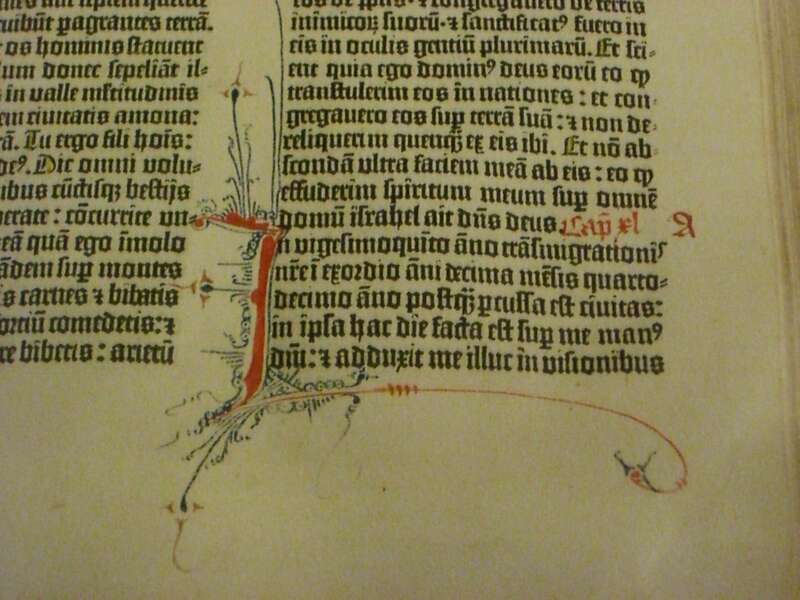 cuibūt ꝑagrantes terrā.
os hominis statuent
lum donec sepeliāt il⸗
in valle multitudinis
em civitatis amona:
rā. Tu ergo fili hoīs:
Dic omni volu⸗
ibus cūctisq; bestijs
erate: cōcurrite un⸗
eā quā ego īmolo
ādem suꝑ montes
s carnes ⁊ bibatis
ortiū comedetis: ⁊
re bibetis: arietū
inimicoꝝ suorū · ⁊ sanctificatꝰ fuero in
eis in oculis gentiū plurimarū. Et sci⸗
ent quia ego dominꝰ deus eorū eo ꝙ
transtulerim eos in nationes: et con⸗
gregavero eos suꝑ terrā suā: ⁊ non de⸗
reliquerim quenq̄ ex eis ibi. Et nō ab⸗
scondā ultra faciem meā ab eis: eo ꝙ
effuderim spiritum meum suꝑ omnē
domū israhel ait dn̄s deus. Cap̄ xl A
In vigesimoquīto āno trāsmigrationis
nr̄e ī exordio āni decima mēsis quarto⸗
decimo āno postq̄ ꝑcussa est civitas:
in ipsa hac die facta est suꝑ me manꝰ
dn̄i: ⁊ adduxit me illuc in visionibus